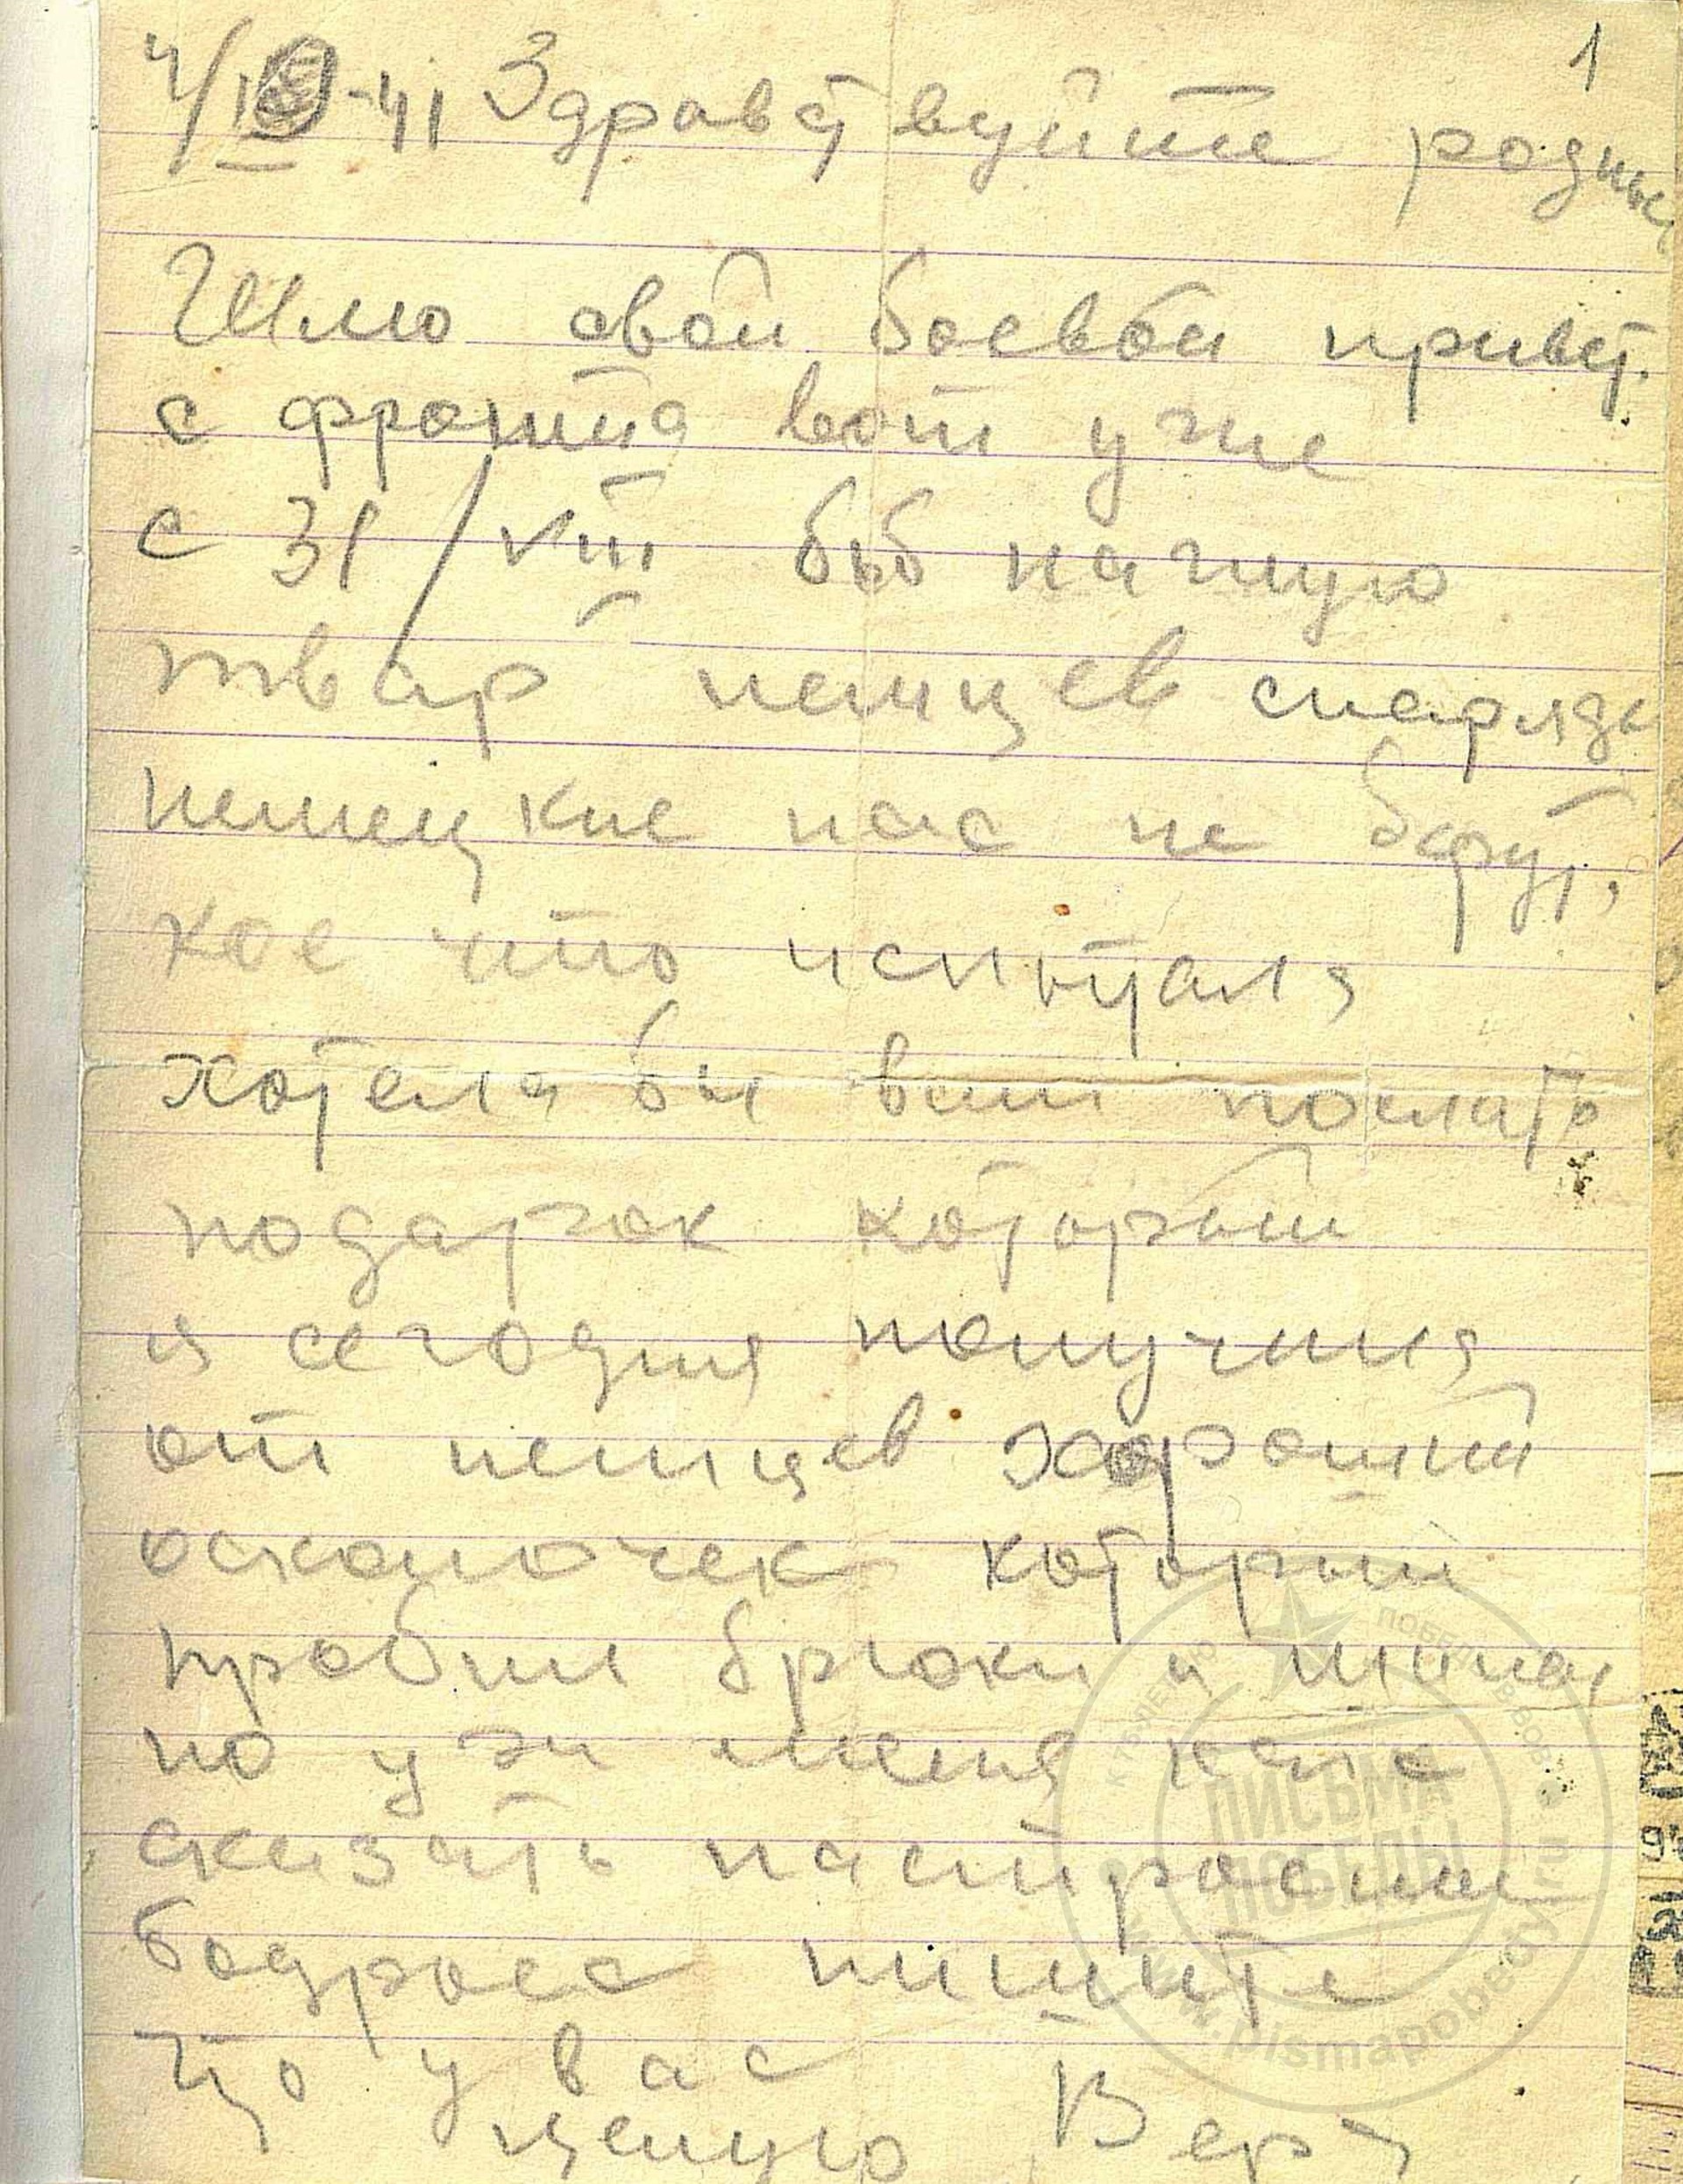 1
4/IX-41 Здравствуйте родные
Шлю свой боевой привет.
с фронта вот уже
с 31/VIII бьб наглую
твар немцев снаряды
немецкие нас не берут,
кое что испытала
хотела бы вам послать
подарок который
я сегодня получила
от немцев хороший
осколочек который
пробил брюки и
но уже меня
сказать настроение
бодрое пишите
что у вас
целую Вера
ПИСЬМА
ПОБЕДЫ
.pismapobedy.ru